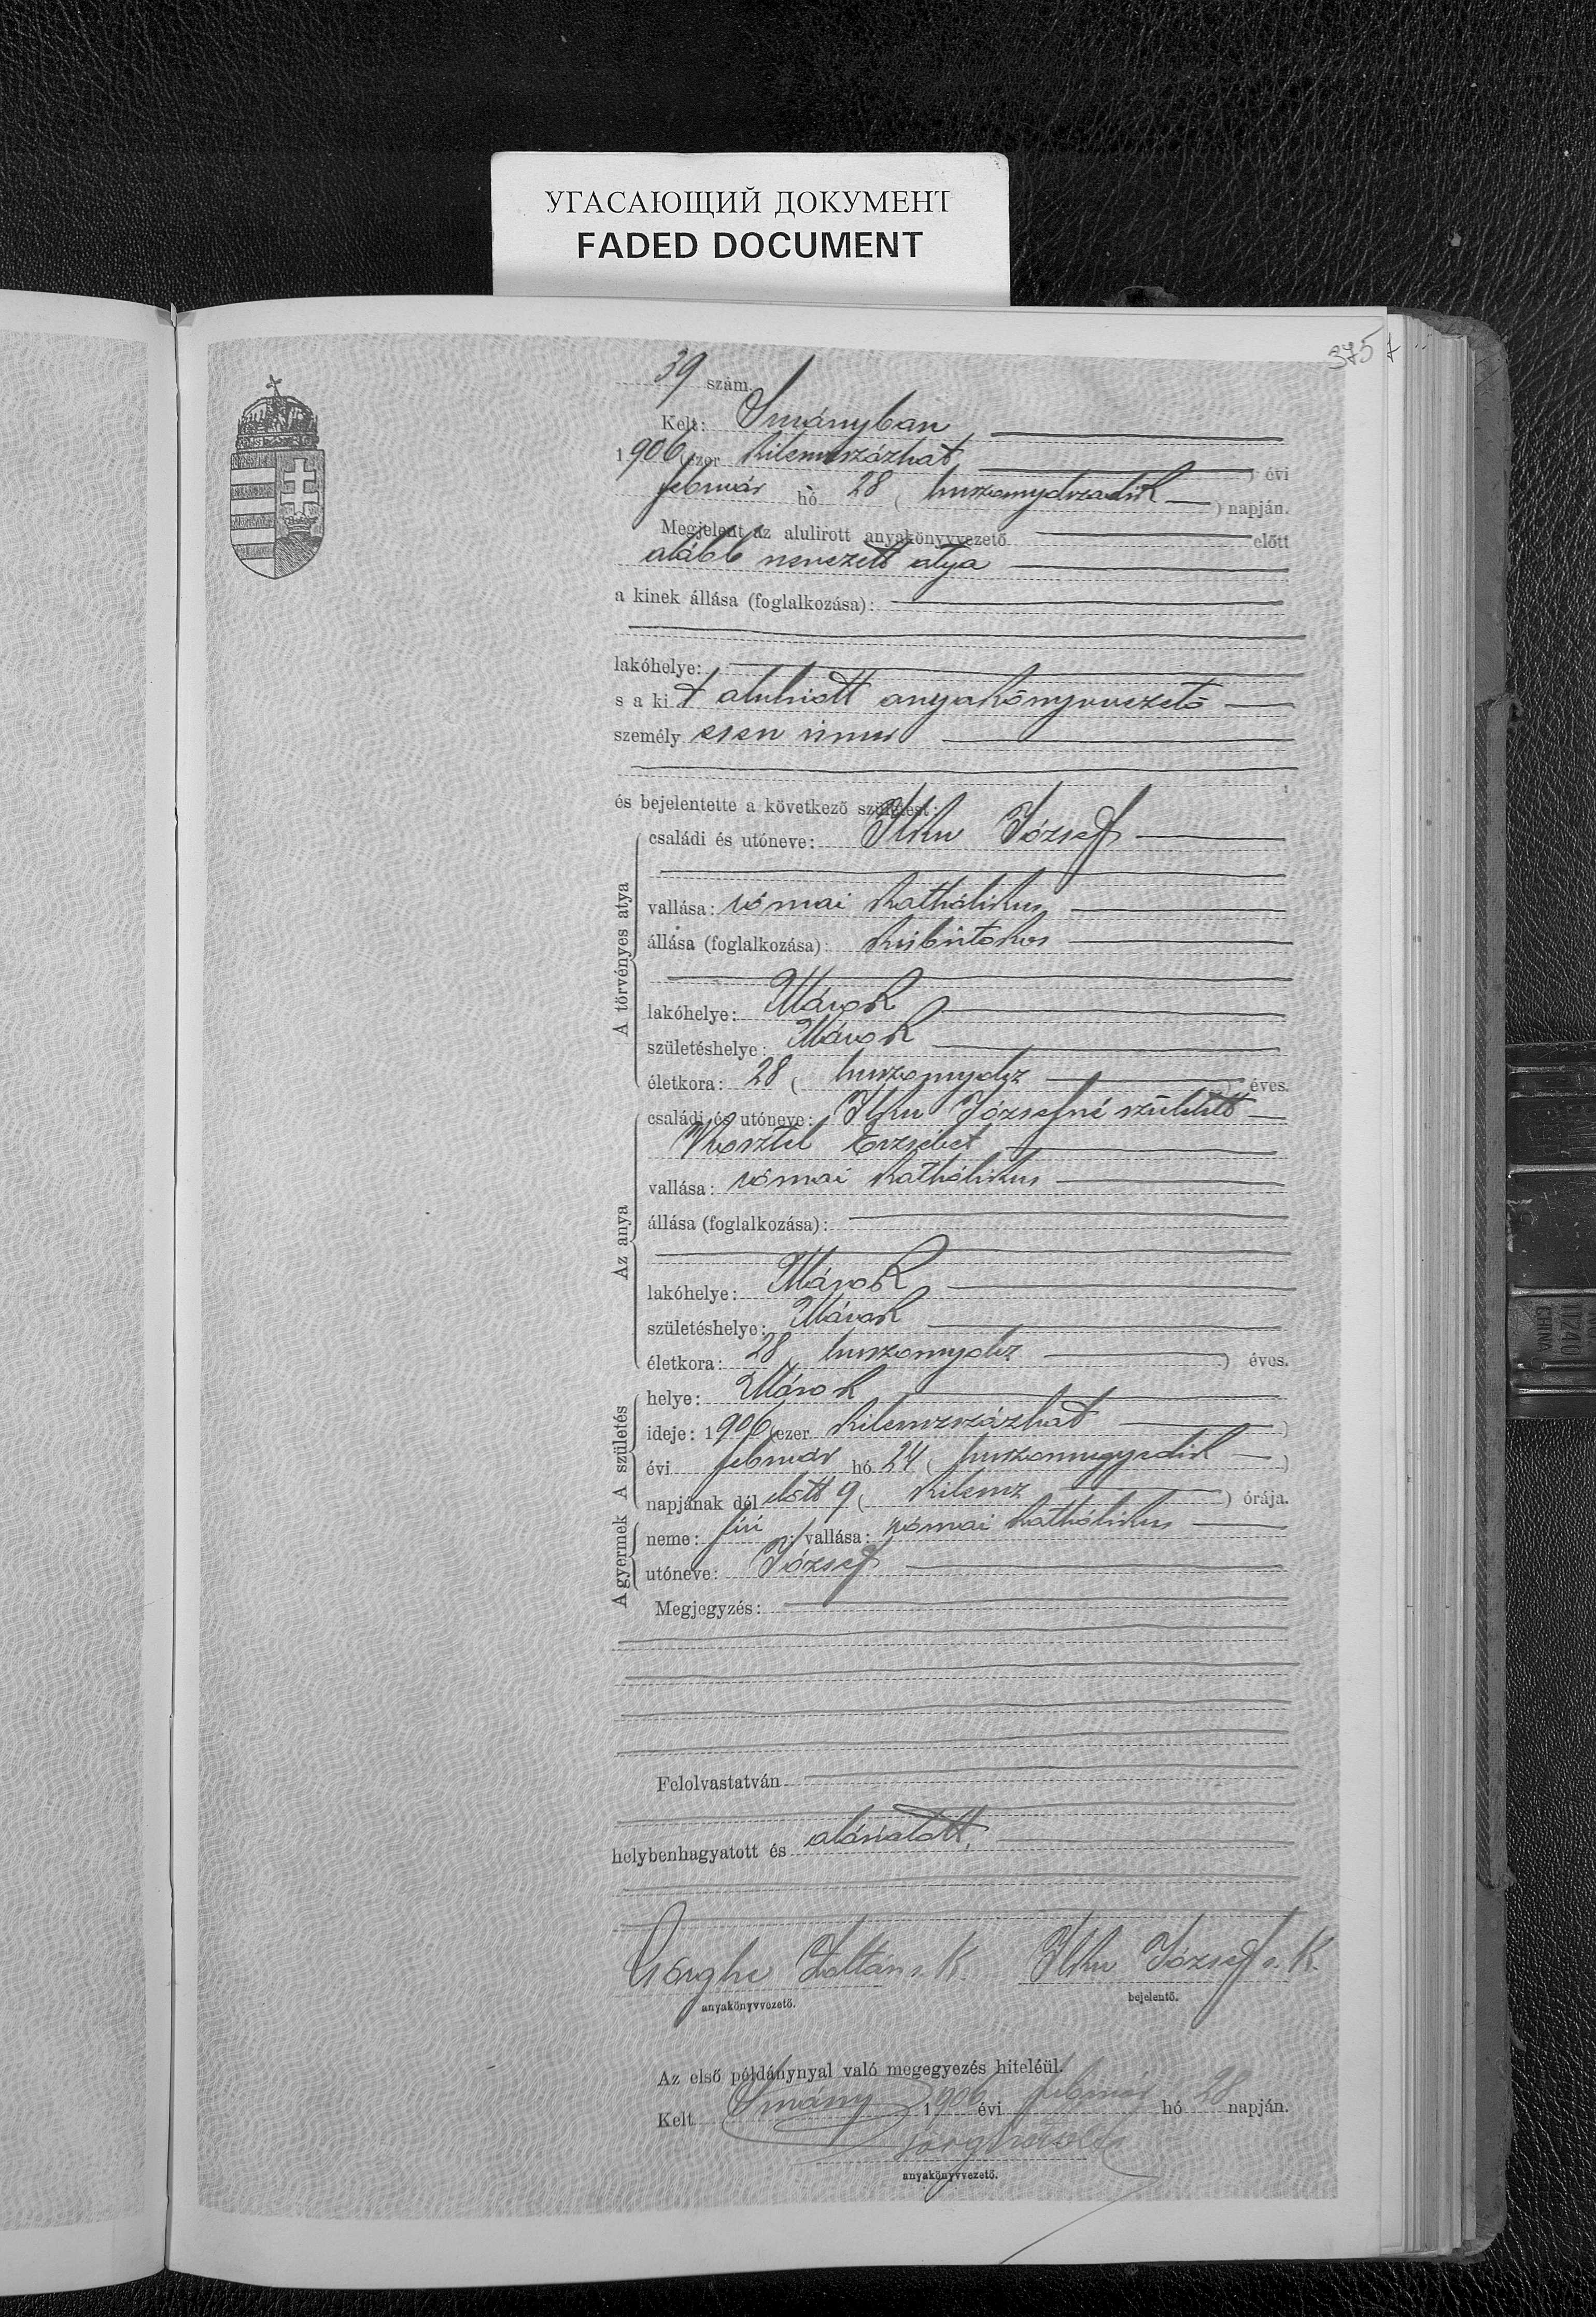 УГАСАЮЩИЙ ДОКУМЕНТ
FADED DOCUMENT
375
39 szám.
Kelt: Imányban
1906 (ezer kilenczszázhat ) évi
február hó 28 ( huszonyolczadik ) napján.
Megjelent az alulirott anyakönyvvezető előtt
alább nevezett atya
a kinek állása (foglalkozása):
lakóhelye:
s a kit alulirott anyakönyvvezető
személy esen ismer
és bejelentette a következő születést:
A törvényes atya
családi és utóneve: Ilku József
vallása: római katholikus
állása (foglalkozása): kisbirtokos
lakóhelye: Márok
születéshelye: Márok
életkora: 28 ( huszonnyolcz ) éves.
Az anya
családi és utóneve: Ilku Józsefné született
Kosztel Erzsébet
vallása: római katholikus
állása (foglalkozása):
lakóhelye: Márok
születéshelye: Márok
életkora: 28 huszonnyolcz ) éves.
A születés
helye: Márok
ideje: 1906 (ezer kilenczszázhat )
évi február hó 24 ( huszonnegyedik )
napjának dél előtt 9 ( kilencz ) órája.
A gyermek
neme: fiú vallása: római katholikus
utóneve: József
Megjegyzés:
Felolvastatván
helybenhagyatott és aláiratott.
Zoltán s. k. Ilku József s. k.
anyakönyvvezető. bejelentő.
Az első példánynyal való megegyezés hiteléül.
Kelt Imány 1906 évi február hó 28 napján.
anyakönyvvezető.
11240
CHINA